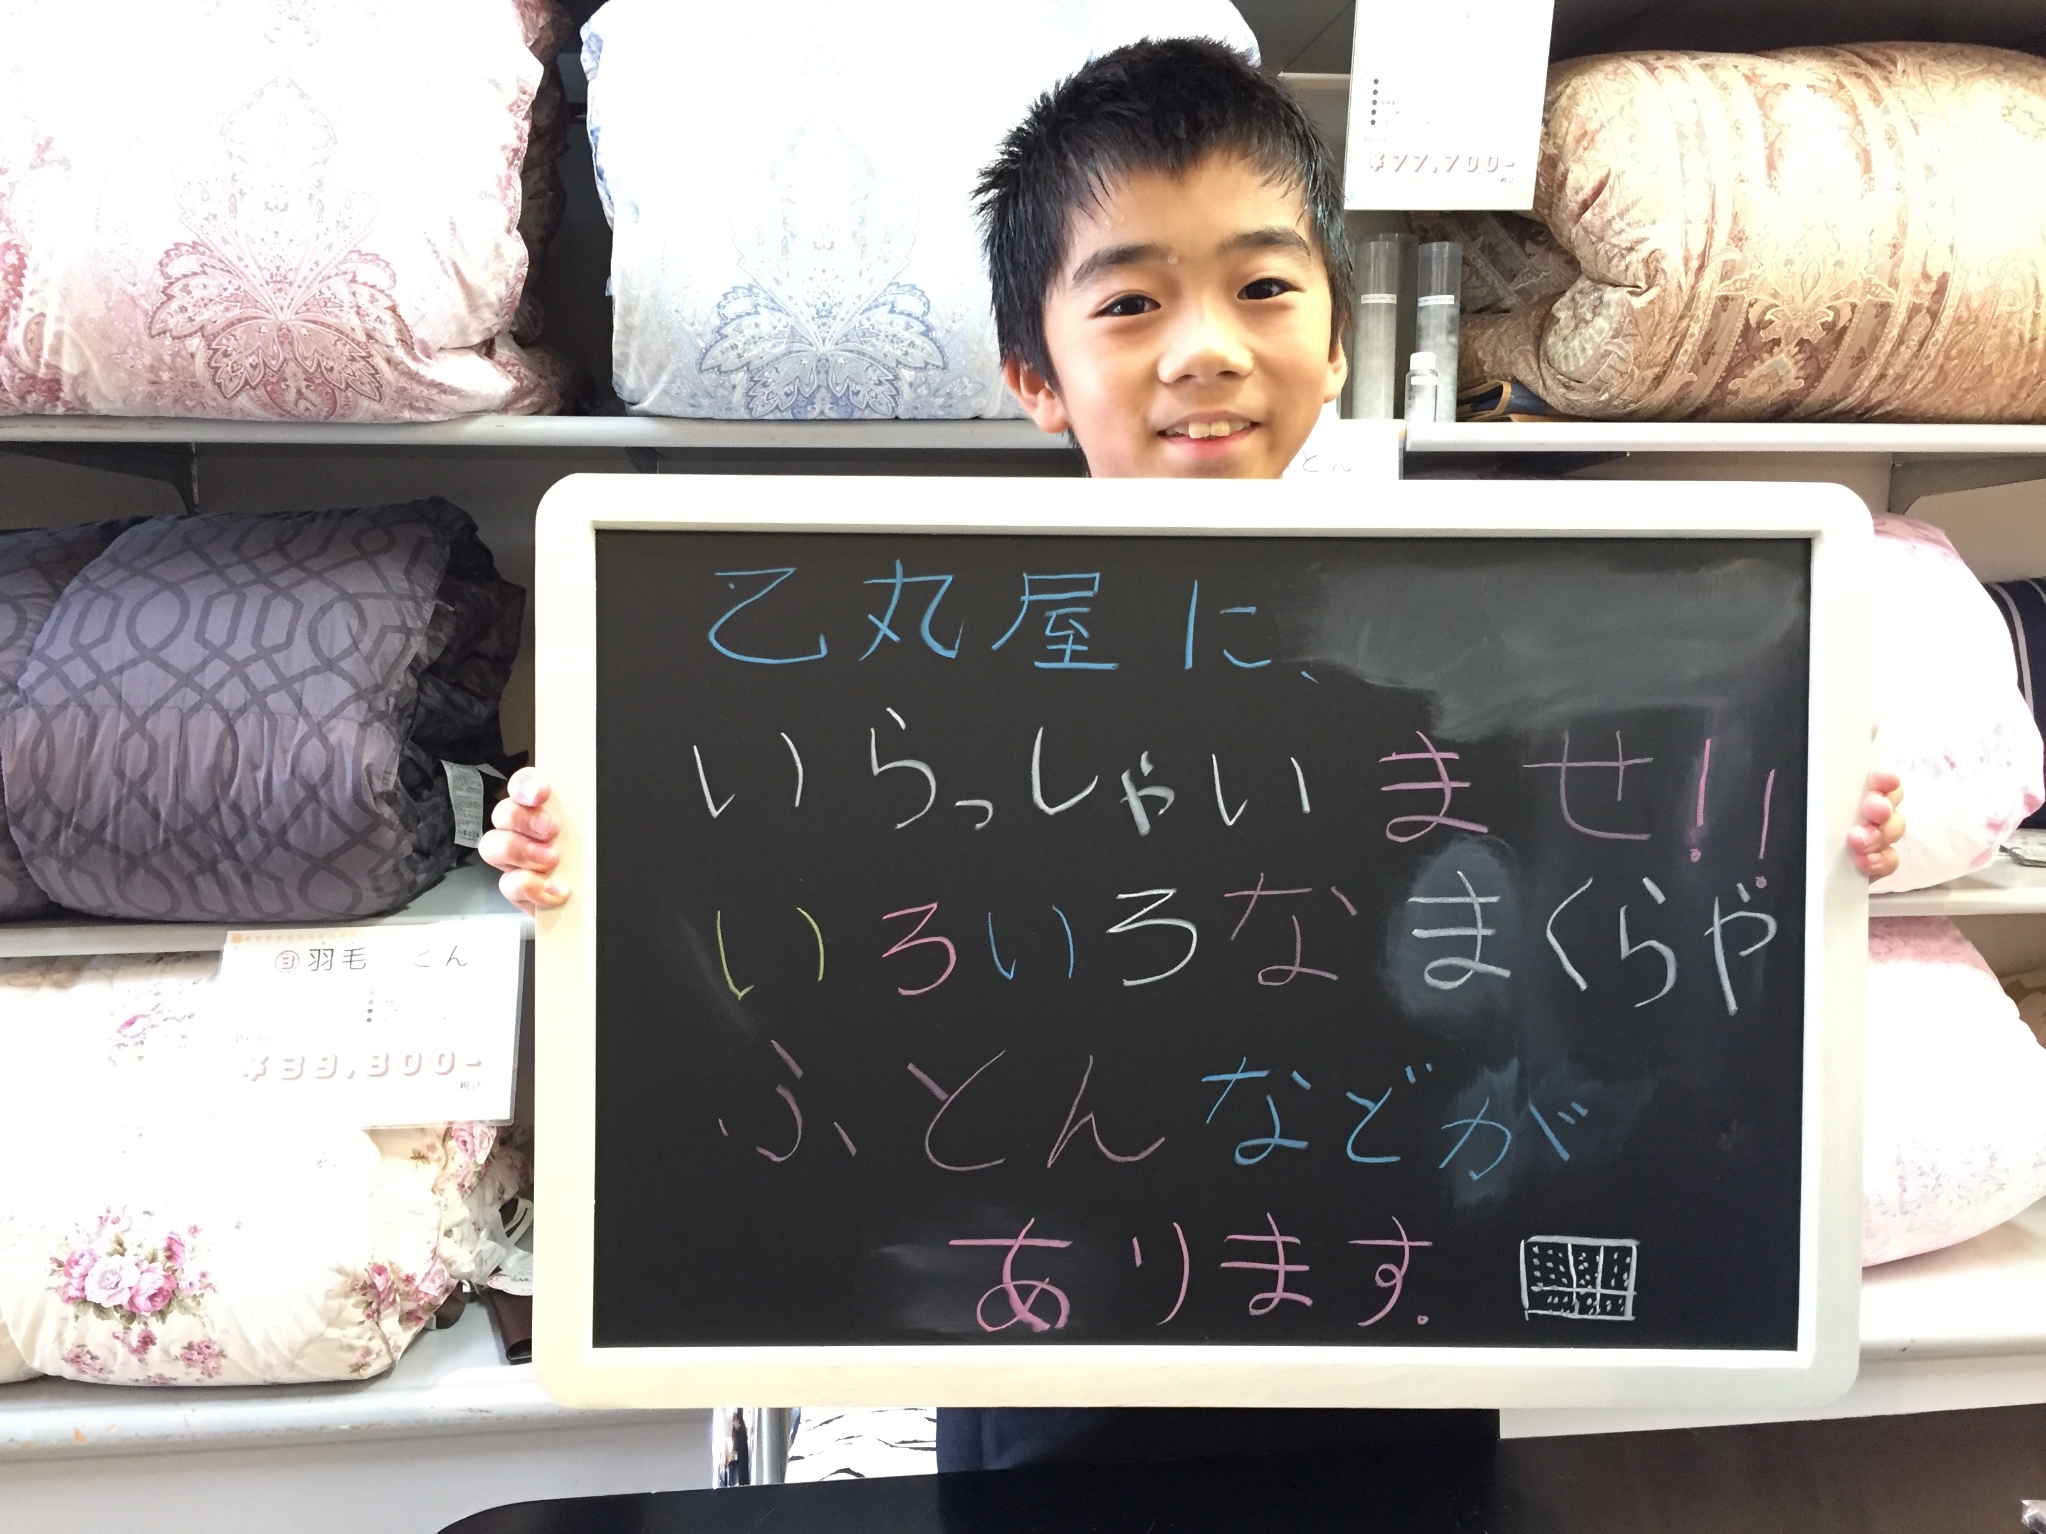 ¥77,700-
とん
乙丸屋に、
いらっしゃいませ!!
いろいろなまくらや
ふとんなどが
あります。
ヨ羽毛 とん
Price
¥39,800-
(税込)